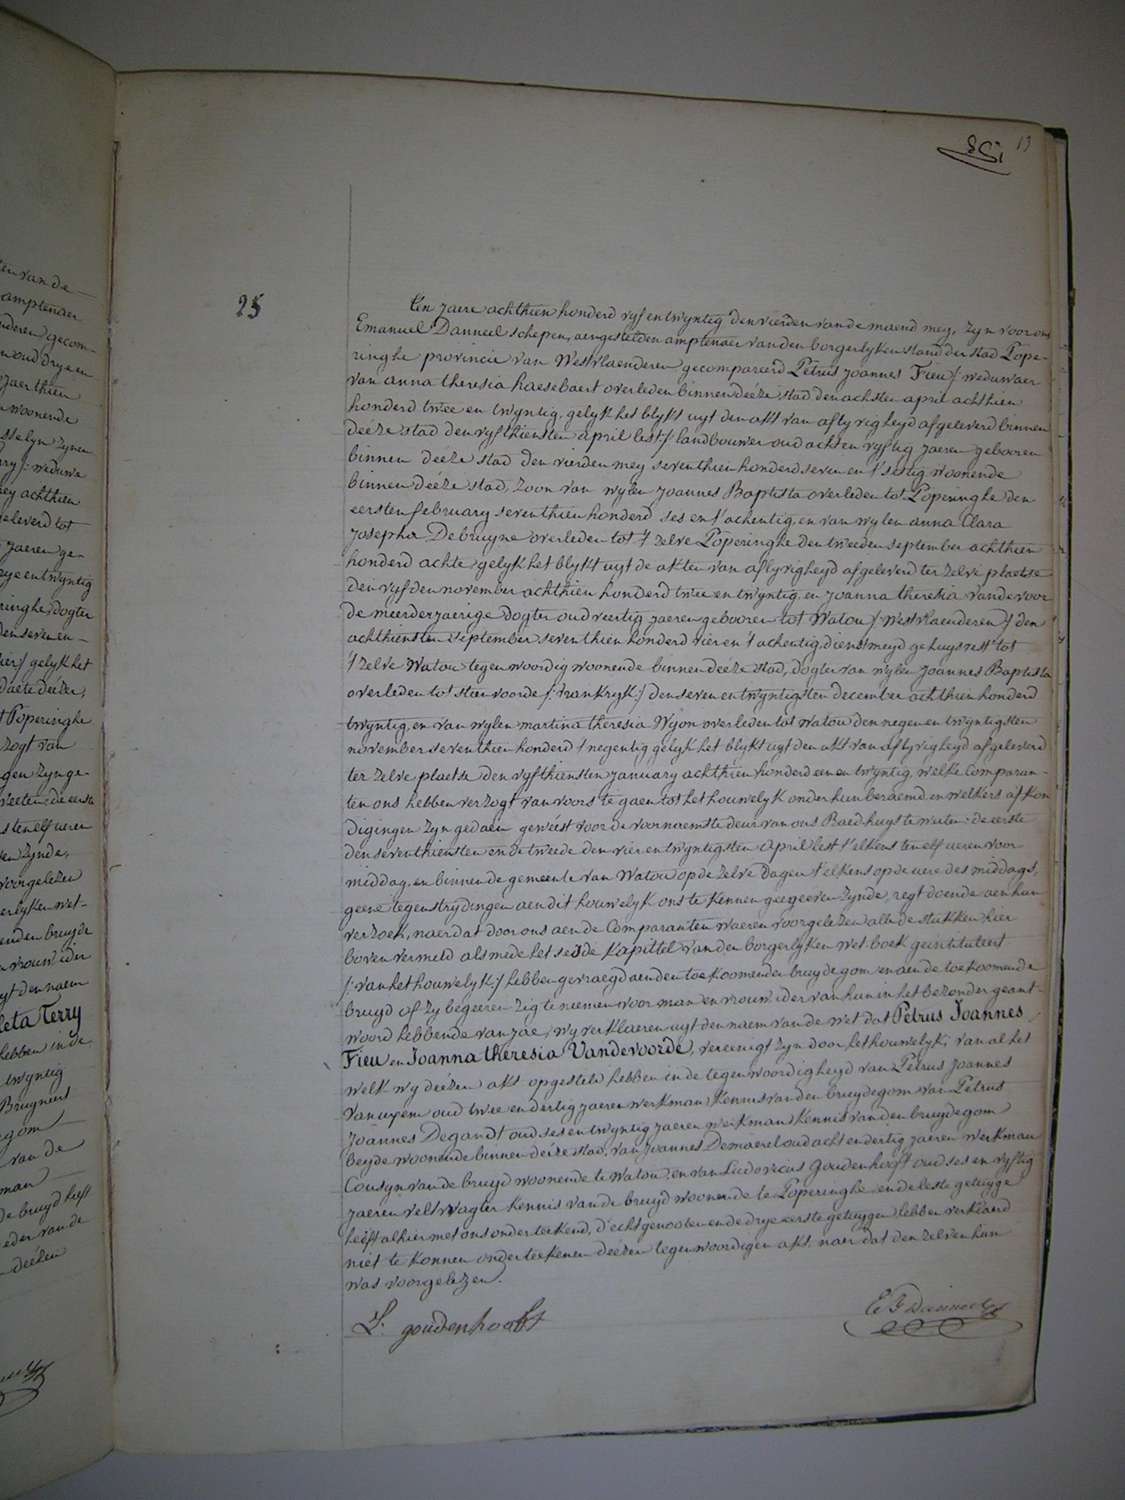 13
25
Ten jaere achthien honderd vyf en twyntig den vierden van de maend mey, zyn voor ons
Emanuel Danneel schepen, aengestelden amptenaer van den borgerlyken stand der stad Pope-
ringhe provincie van Westvlaenderen gecompareerd Petrus Joannes Fieu /: weduwaer
van anna theresia haesebaert overleden binnen déeze stad den achsten april achthien
honderd twee en twyntig, gelyk het blykt uyt den akt van aflyvigheyd afgeleverd binnen
deéze stad den vyfthiensten april lest :/ landbouwer oud acht en vyftig jaeren gebooren
binnen deéze stad den vierden mey seventhien honderd seven en t'sestig woonende
binnen déeze stad, zoon van wylen Joannes Baptista overleden tot Poperinghe den
eersten february seventhien honderd ses en t'achentig, en van wylen anna Clara
Josepha Debruyne overleden tot 't zelve Poperinghe den tweeden september achthien
honderd achte, gelyk het blykt uyt de akten van aflyvigheyd afgeleverd ter zelve plaetse
den vyfden november achthien honderd twee en twyntig, en Joanna theresia vandevoor
de meerderjaerige dogter oud veertig jaeren gebooren tot Watou /: Westvlaenderen :/ den
achthiensten september seventhien honderd vier en t'achentig, dienstmeyd gehuysvest tot
't zelve Watou tegenwoordig woonende binnen deéze stad, dogter van wylen Joannes Baptista
overleden tot steenvoorde /: frankryk :/ den seven en twyntigsten december achthien honderd
twyntig, en van wylen martina theresia Wyon overleden tot Watou den negen en twyntigsten
november seventhien honderd t'negentig gelyk het blykt uyt den akt van aflyvigheyd afgeleverd
ter zelve plaetse den vyfthiensten january achthien honderd een en twyntig, welke Comparan-
ten ons hebben verzogt van voors te gaen tot het houwelyk onder hun beraemd en welkers afkon
digingen zyn gedaen geweést voor de voornaemste deur van ons Raedhuys te weten: de eerste
den seventhiensten en de tweede den vier en twyntigsten April lest t'elkens ten elf ueren voor-
middag, en binnen de gemeente van Watou op de zelve dagen t'elkens op de uere des middags,
geene tegenstrydingen aen dit houwelyk ons te kennen gegeeven zynde, regt doende aen hun
verzoek, naer dat door ons aen de Comparanten waeren voorgelezen alle de stukken hier
boven vermeld als mede het sesde kapittel van den borgerlyken wet-boek geintituleert
/: van het houwelyk :/ hebben gevraegd aen den toekoomenden bruydegom en aen de toekoomende
bruyd of zy begeeren zig te neemen voor man en vrouw ider van hun in het bezonder geant-
woord hebbende van jae, wy verklaeren uyt den naem van de wet dat Petrus Joannes
Fieu en Joanna theresia Vandevoorde, vereenigt zyn door het houwelyk, van al het
welk wy deézen akt opgesteld hebben in de tegenwoordigheyd van Petrus Joannes
Vanuxem oud twee en dertig jaeren werkman kennis van den bruydegom van Petrus
Joannes Degandt oud ses en twyntig jaeren werkman kennis van den bruydegom
beyde woonende binnen déeze stad, van Joannes Demaerel oud acht en dertig jaeren werkman
Cousyn van de bruyd woonende te Watou, en van Ludovicus goudenhooft oud ses en vyftig
jaeren veltwagter kennis van de bruyd woonende te Poperinghe en de leste getuyge
heéft alhier met ons onderteekend, d'echtgenooten en de drye eerste getuygen hebben verklaerd
niet te konnen onderteekenen deézen tegenwoordigen akt, naer dat den zelven hun
was voorgelezen.
L. goudenhooft
E G Danneel